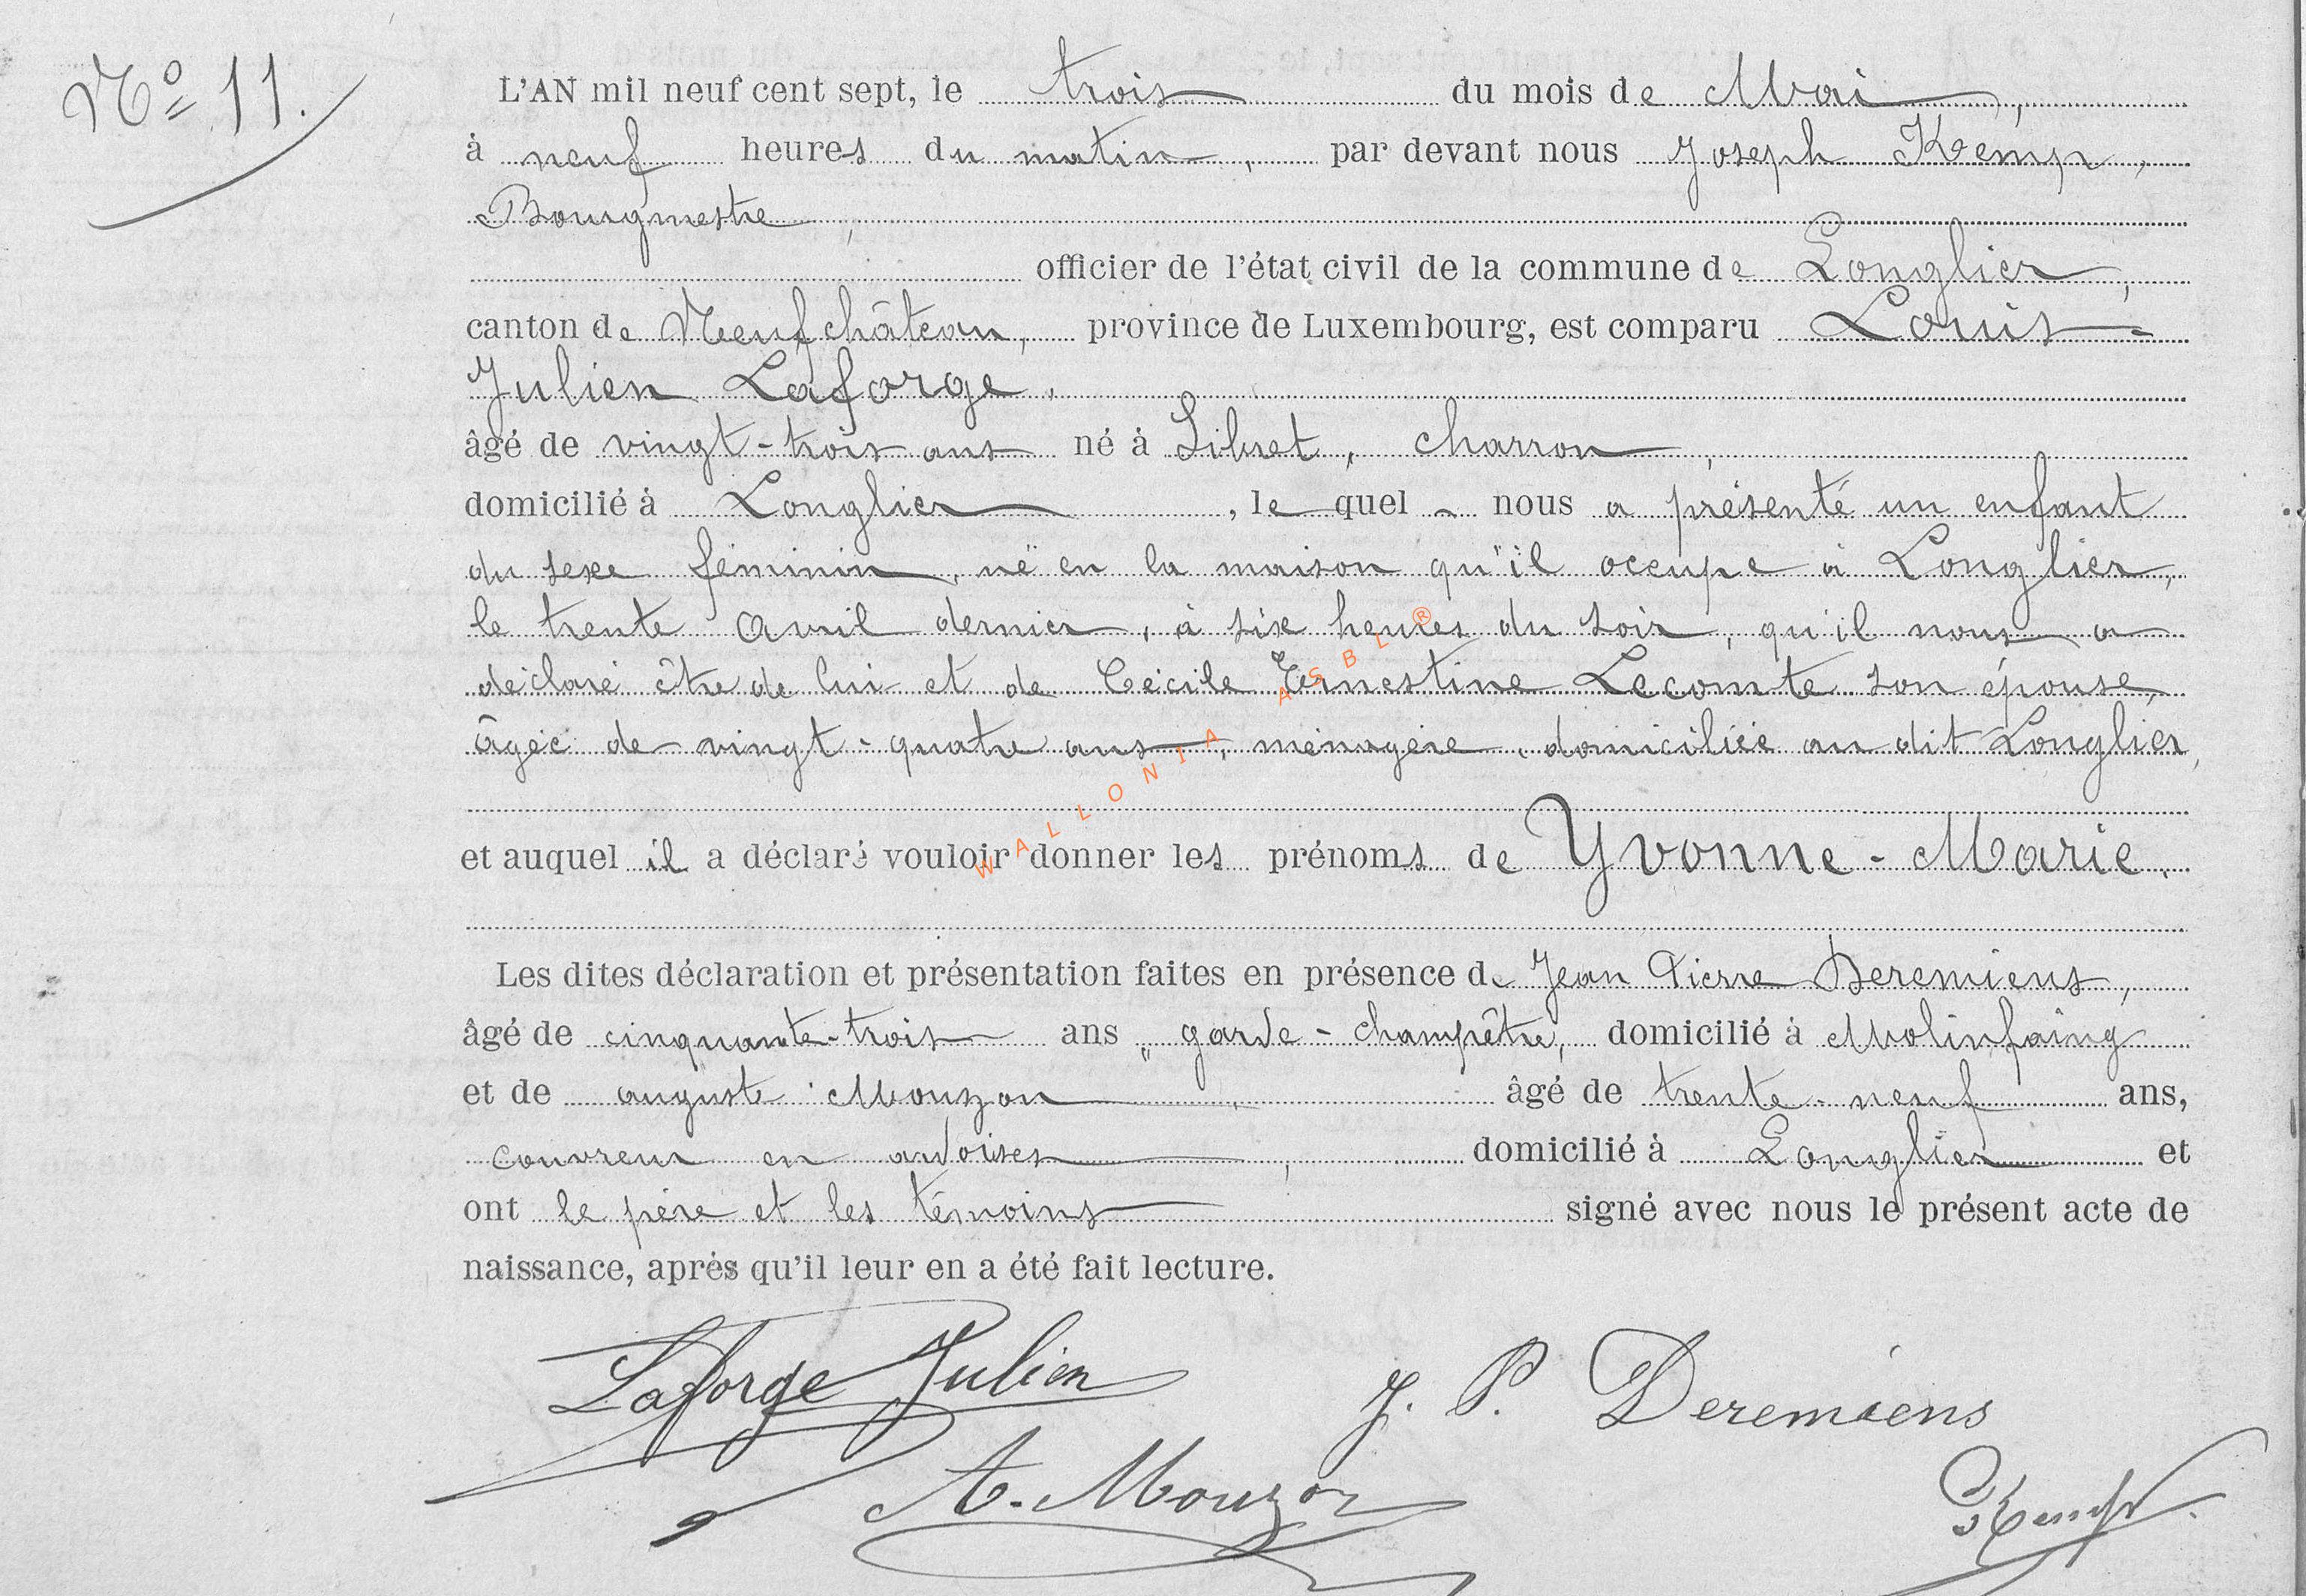 Nº 11.
L'AN mil neuf cent sept, le trois du mois de Mai,
à neuf heures du matin, par devant nous Joseph Kemp,
Bourgmestre,
officier de l'état civil de la commune de Longlier,
canton de Neufchâteau, province de Luxembourg, est comparu Louis-
Julien Laforge,
âgé de vingt-trois ans né à Sibret, charron,
domicilié à Longlier, le quel nous a présenté un enfant
du sexe féminin, né en la maison qu'il occupe à Longlier,
le trente avril dernier, à six heures du soir, qu'il nous a
déclaré être de lui et de Cécile Ernestine Lecomte son épouse,
âgée de vingt-quatre ans, ménagère, domiciliée au dit Longlier,
et auquel il a déclaré vouloir donner les prénoms de Yvonne-Marie.
Les dites déclaration et présentation faites en présence de Jean Pierre Deremiens,
âgé de cinquante-trois ans, garde-champêtre, domicilié à Molinfaing
et de auguste Mouzon, âgé de trente-neuf ans,
couvreur en ardoises, domicilié à Longlier et
ont le père et les témoins signé avec nous le présent acte de
naissance, après qu'il leur en a été fait lecture.
Laforge Julien
J. P. Deremiens
A. Mouzon
Kemp.
WALLONIA ASBL®